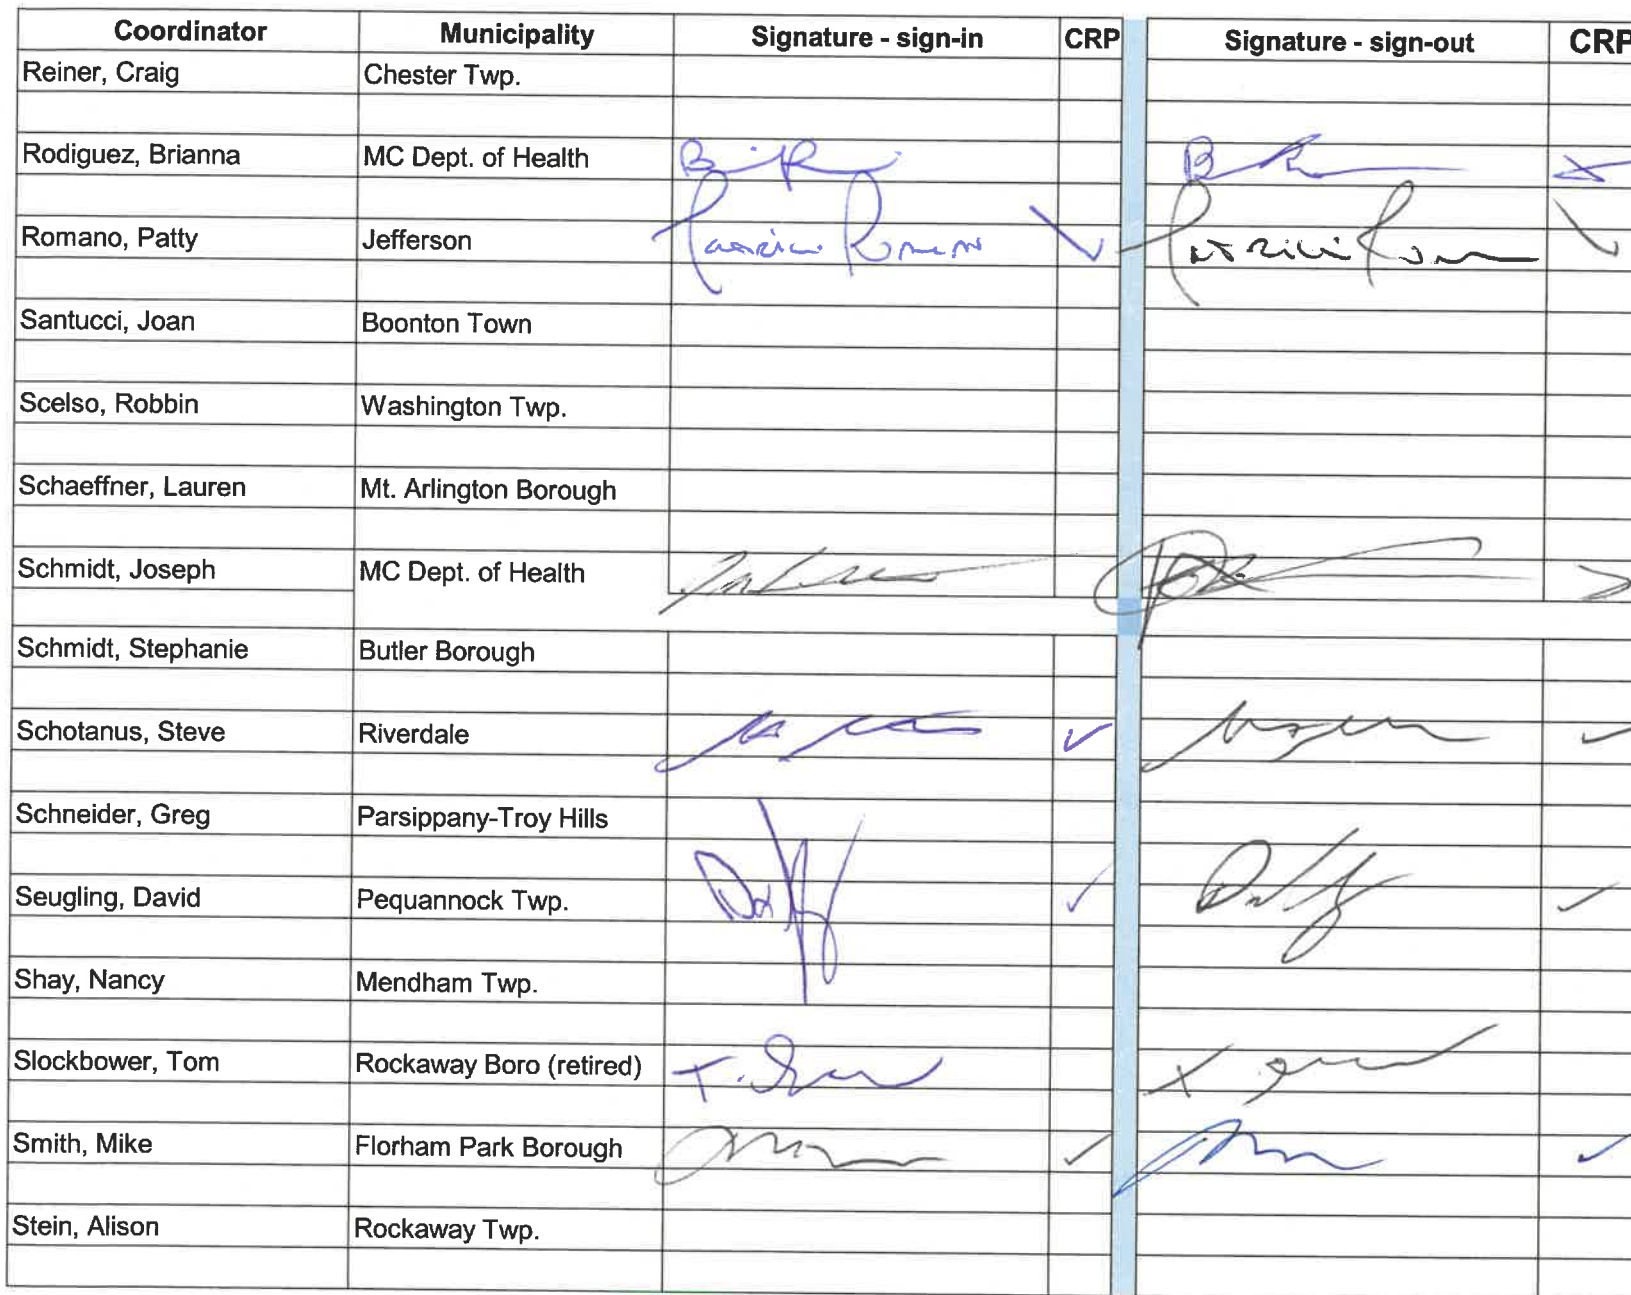 Coordinator Municipality Signature - sign-in CRP Signature - sign-out CRP
Reiner, Craig Chester Twp.
Rodiguez, Brianna MC Dept. of Health
Romano, Patty Jefferson
Santucci, Joan Boonton Town
Scelso, Robbin Washington Twp.
Schaeffner, Lauren Mt. Arlington Borough
Schmidt, Joseph MC Dept. of Health
Schmidt, Stephanie Butler Borough
Schotanus, Steve Riverdale
Schneider, Greg Parsippany-Troy Hills
Seugling, David Pequannock Twp.
Shay, Nancy Mendham Twp.
Slockbower, Tom Rockaway Boro (retired)
Smith, Mike Florham Park Borough
Stein, Alison Rockaway Twp.